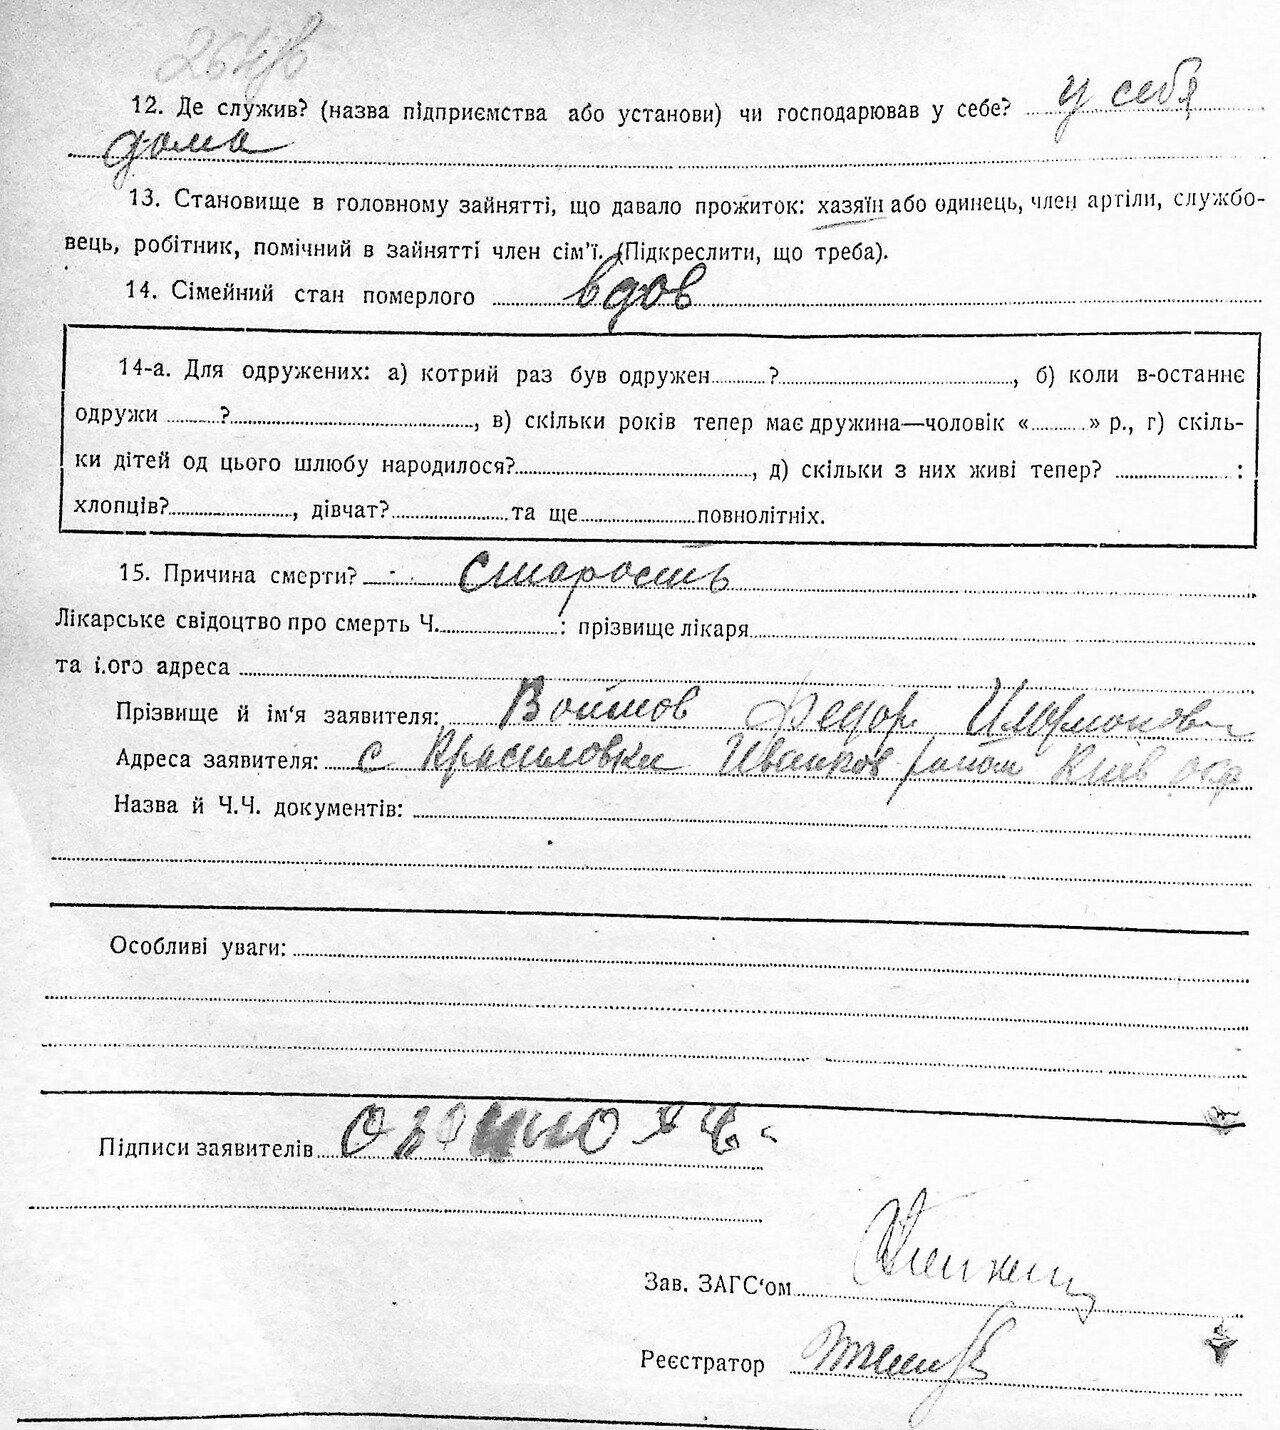 12. Де служив? (назва підприємства або установи) чи господарював у себе? у себя
дома
13. Становище в головному зайнятті, що давало прожиток: хазяїн або одинець, член артіли, службо-
вець, робітник, помічний в зайнятті член сім’ї. (Підкреслити, що треба).
14. Сімейний стан померлого вдов
14-а. Для одружених: а) котрий раз був одружен ?, б) коли в-останнє
одружи ?, в) скільки років тепер має дружина—чоловік « » р., г) скіль-
ки дітей од цього шлюбу народилося?, д) скільки з них живі тепер? :
хлопців?, дівчат? та ще повнолітніх.
15. Причина смерти? старость
Лікарське свідоцтво про смерть Ч. : прізвище лікаря
та його адреса
Прізвище й ім‘я заявителя: Федор
Адреса заявителя: с Красиловки Иванков район Киев окр
Назва й Ч.Ч. документів:
Особливі уваги:
Підписи заявителів
Зав. ЗАГС‘ом
Реєстратор